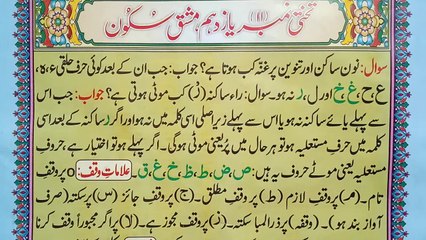 تختی نمبر یازدہم (۱۱) مشق سکون
سوال: نون ساکن اور تنوین پر غنّہ کب ہوتا ہے؟ جواب: جب ان کے بعد کوئی حرف حلقی ء، ہ،
ع، ح، غ، خ اور ل، ر نہ ہو۔ سوال: راء ساکنہ (رْ) کب موٹی ہوتی ہے؟ جواب: جب اس
سے پہلے یائے ساکنہ نہ ہو یا اس سے پہلے زیر اصلی اسی کلمہ میں نہ ہو اور اگر رساکنہ کے بعد اسی
کلمہ میں حرف مستعلیہ ہو تو ہر حال میں پُر یعنی موٹی ہوگی۔ اگر پہلے ہو تو اختیار ہے، حروف
مستعلیہ یعنی موٹے حروف یہ ہیں: ص، ض، ط، ظ، خ، غ، ق۔ علامات وقف: ○ پر وقف
تام۔ (مـ) پر وقف لازم (ط) پر وقف مطلق۔ (ج) پر وقف جائز (س) پر سکتہ (صرف
آواز بند ہو)۔ (وقفہ) پر ذرا لمبا سکتہ۔ (ز) پر وقف مجوز ہے۔ (لا) پر اگر مجبوراً وقف کرنا